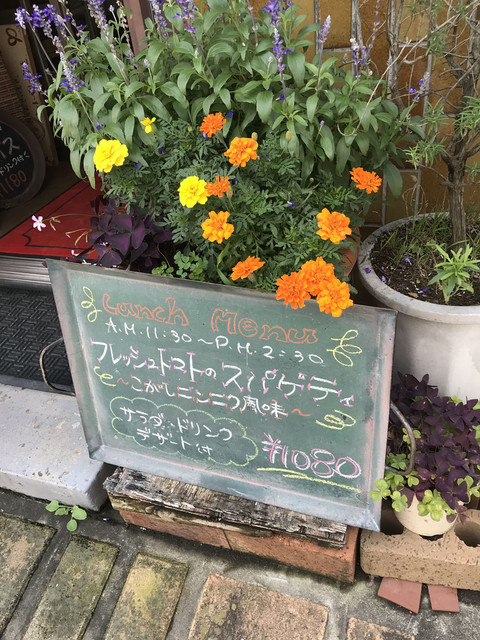 Lunch Menu
A.M.11:30～P.M.2:30
フレッシュトマトのスパゲティ
～こがしニンニク風味～
サラダ・ドリンク
デザート付
¥1080